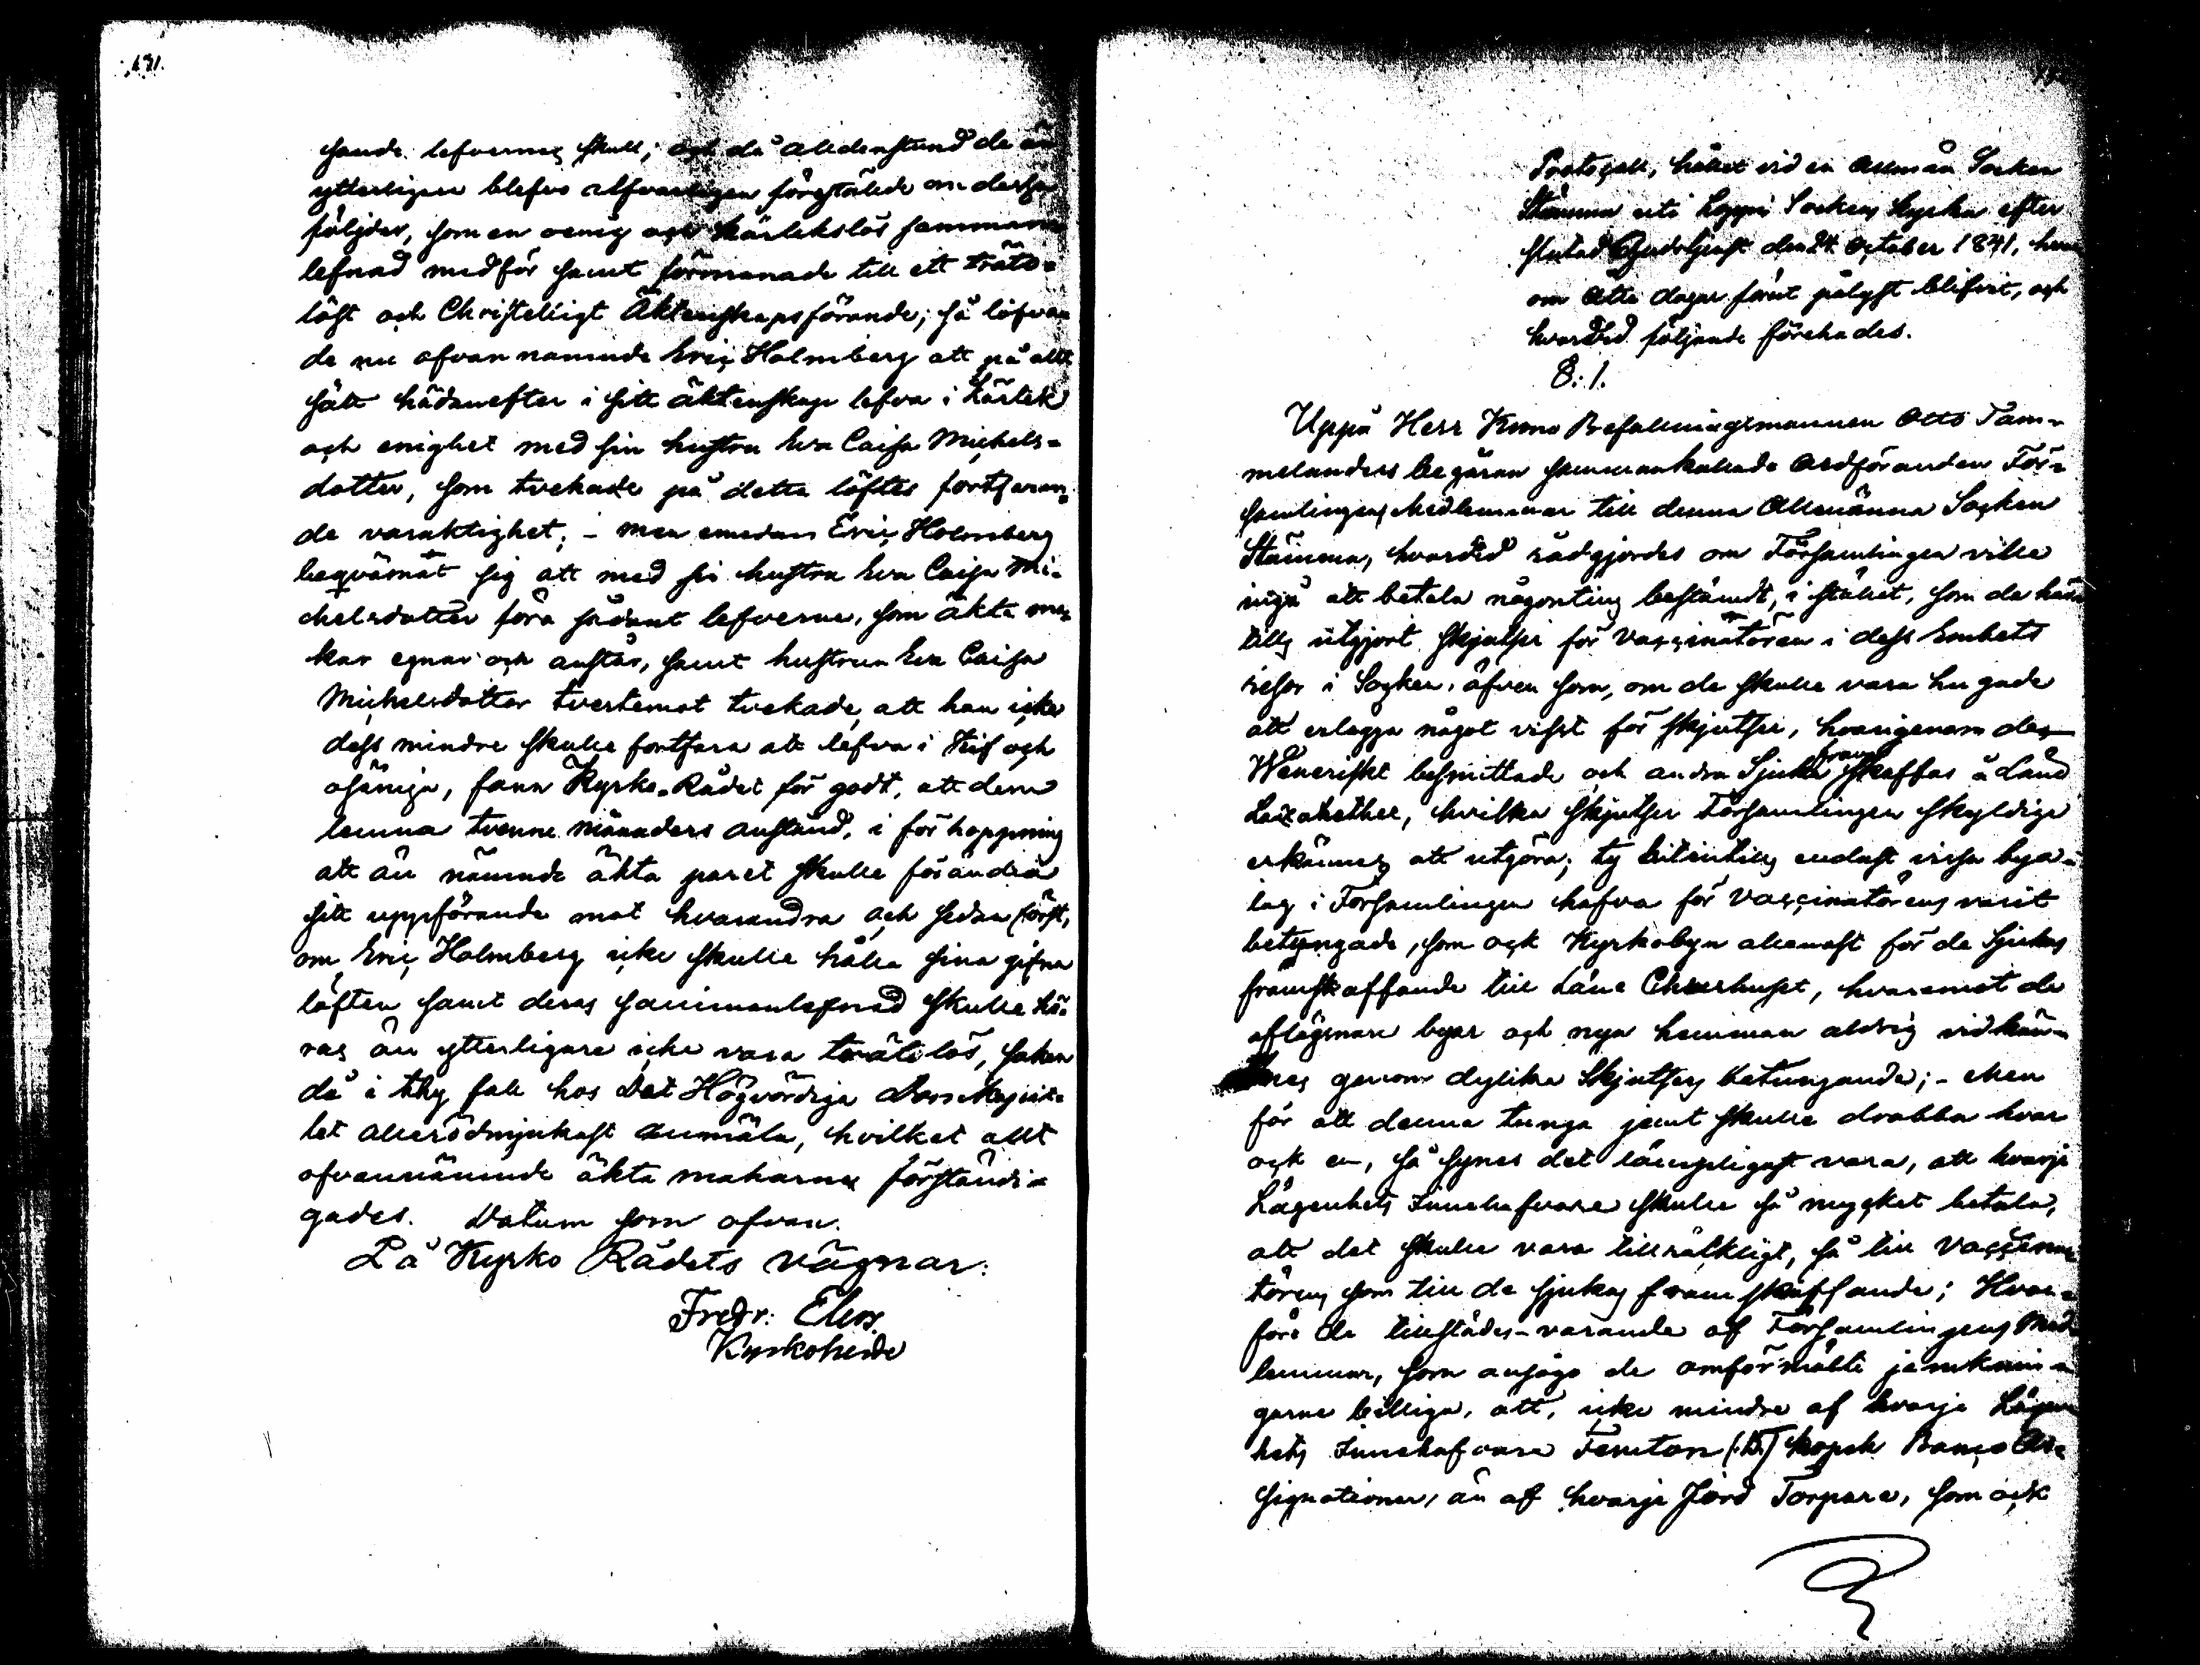 131.
sande lefvernes skull; och då alldenstund de än
ytterligare blefvo alfvarligen förestälde om dessa
följder, som en oenig och kärlekslös samman-
lefnad medför samt förmanade till ett träto-
löst och Christeligt Äktenskapsförande; så lofva-
de nu ofvan namnde Eric Holmberg att på allt
sätt hädanefter i sitt äktenskap lefva i Kärlek
och enighet med sin hustru Eva Caisa Michels-
dotter, som tvekade på detta löftes fortfaran-
de varaktighet; – men emedan Eric Holmberg
beqvämat sig att med sin hustru Eva Caisa Mi-
chelsdotter föra sådant lefverne, som äkta ma-
kar egnar och anstår, samt hustrun Eva Caisa
Michelsdotter tvertemot tvekade, att han icke
dess mindre skulle fortfara att lefva i Kif och
osämja, fann Kyrko-Rådet för godt, att dem
lemna tvenne månaders anstånd, i förhoppning
att än nämnde äkta paret skulle förändra
sitt uppförande mot hvarandra och sedan först,
om Eric Holmberg icke skulle hålla sina gifna
löften samt deras sammanlefnad skulle hö-
ras än ytterligare icke vara trätelös, saken
då i thy fall hos Det Högvördiga Domkapit-
let allerödmjukast anmäla, hvilket allt
ofvannämnde äkta makarna förständi-
gades. Datum som ofvan.
På Kyrko Rådets vägnar:
Fredr: Elers
Kyrkoherde
Protocoll, hållit vid en Allmän Socken
Stämma uti Loppi Sockens Kyrka efter
slutad Gudstjenst den 24 October 1841, hvar
om åtta dagar förut pålyst blifvit, och
hvarvid följande förehades.
§: 1.
Uppå Herr Krono Befallningsmannen Otto Tam-
melanders begäran sammankallade Ordföranden För-
samlingens Medlemmar till denna Allmänna Socken
Stämma, hvarvid rådgjordes om Församlingen ville
ingå att betala någonting bestämdt, i stället, som de härr
tills utgjort skjutser för Vaccinatören i dess Embets
resor i Socken, äfven som, om de skulle vara hugade
att erlägga något visst för skjutser, hvarigenom de
Weneriskt besmittade och andra Sjuka fram skaffas å Läns
Lazarethet, hvilka skjutser Församlingen skyldige
erkännes att utgöra; ty hitintills endast vissa bya-
lag i Församlingen hafva för Vaccinatörens varit
betungade, som ock Kyrkobyn allenast för de Sjukas
framskaffande till Läns Churhuset, hvaremot de
aflägsnare byar och nya hemman aldrig vidkän-
nes genom dylika Skjutsers betungande; – Men
för att denna tunga jemt skulle drabba hvar
och en, så synes det lämpligast vara, att hvarje
Lägenhets Innehafvare skulle så mycket betala,
att det skulle vara tillräckligt, så till Vaccina-
törens som till de sjukas framskaffande; Hvar-
före de tillstädes-varande af Församlingens Med
lemmar, som ansågo de omförmälte jemknin-
garne billiga, att, icke mindre af hvarje Lägen
hets Innehafvare Femton (15) kopek Banco As-
signationer, än af hvarje Jord Torpare, som ock